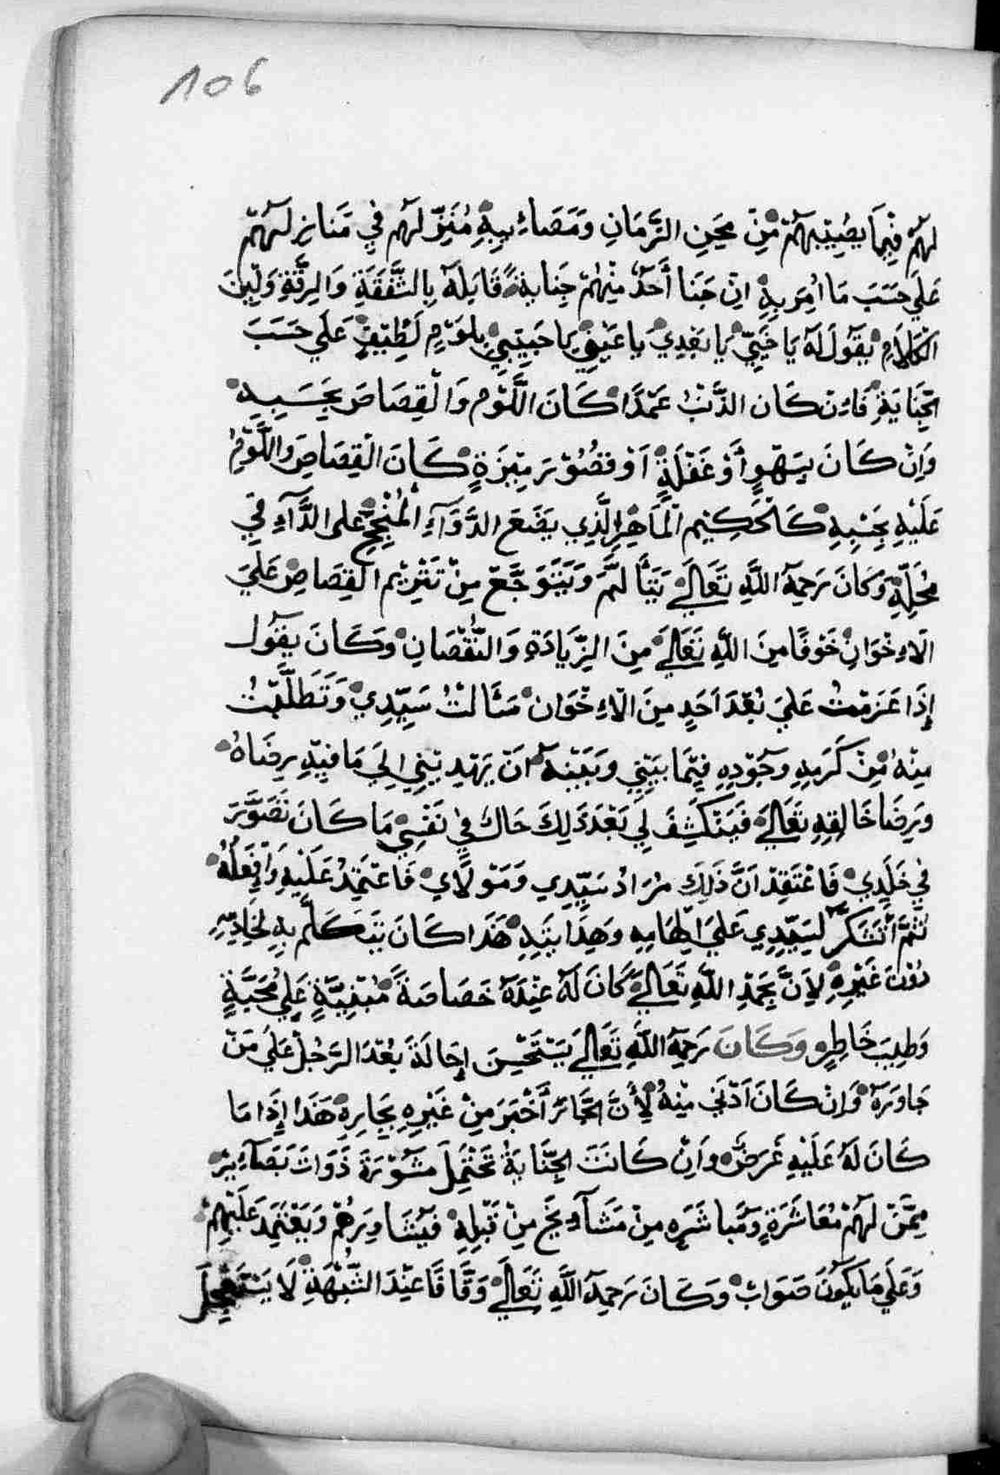 106
لهم فيما يصيبهم من محن الزمان ومصائبه منزلهم في منازلهم
علي حسب ما امر به ان جنا أحد منهم جناية قابله بالشفقة والرقة ولين
الكلام يقول له يا خيي يا بعدي يا عيني يا حبيبي بلوم لطيف علي حسب
الجناية فان كان الذنب عمدا كان اللوم والقصاص بحسبه
وان كان بسهو أو غفلة او قصور ميزة كان القصاص واللوم
عليه بحسبه كالحكيم الماهر الذي يضع الدواء المنجح على الداء في
محله وكان رحمه الله تعالي يتألم ويتوجع من تنزيم القصاص علي
الاخوان خوفا من الله تعالي من الزيادة والنقصان وكان يقول
إذا عزمت علي بعد احد من الاخوان سالت سيدي وتطلبت
منه من كرمه وجوده فيما بيني وبينه ان يهديني الي ما فيه رضاه
ورضا خالقه تعالي فينكشف لي بعد ذلك حال في نفسي ما كان تصور
في خلدي فاعتقد ان ذلك مراد سيدي ومولاي فاعتمد عليه وافعله
ثم أتشكر لسيدي علي الهامه وهدايته هذا كان يتكلم به لخادمه
دون غيره لان بحمد الله تعالي كان له عنده خصاصة مبنية علي محبة
وطيب خاطر وكان رحمه الله تعالي يستحسن احالة بعد الرجل علي من
جاوره وان كان ادني منه لأن الجار أخبر من غيره بجاره هذا إذا ما
كان له عليه غرض وان كانت الجناية تحتمل مشورة ذوات بصاير
ممن لهم معاشرة ومباشرة من مشايخ من قبله فيشاورهم ويعتمد عليهم
وعلي ما يكون صواب وكان رحمه الله تعالي وقاقا عند الشبهة لا يستعجل